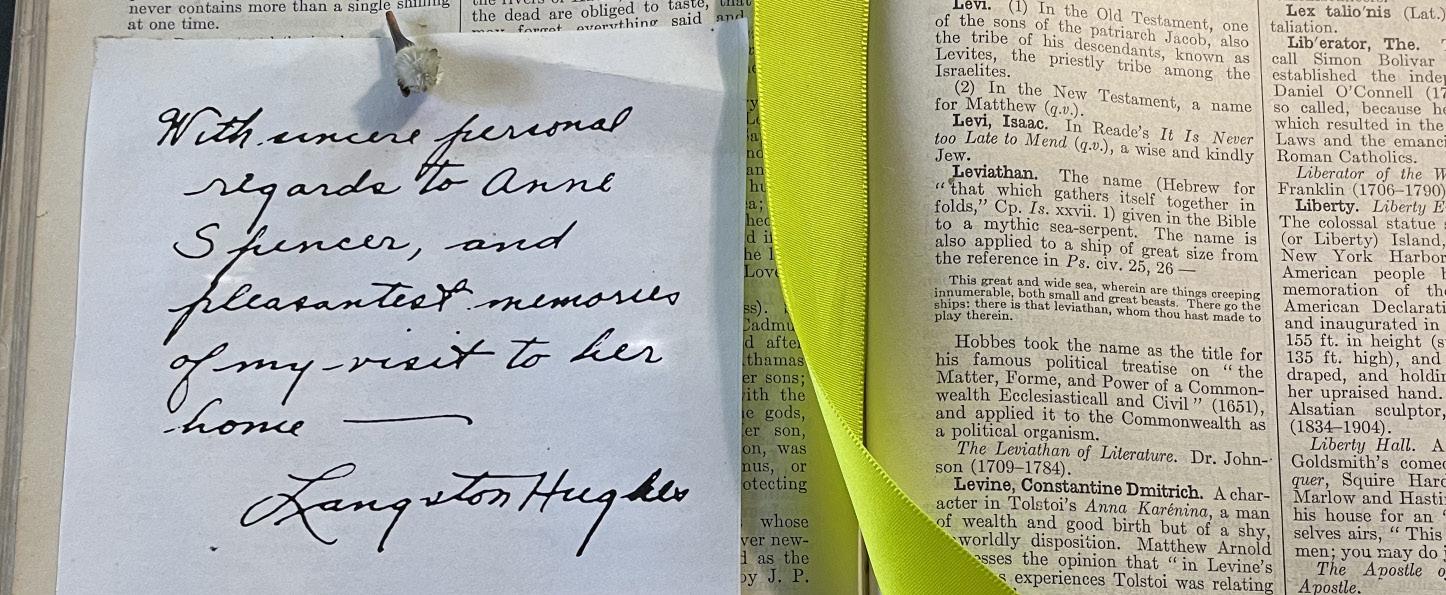 never contains more than a single shilling
at one time.
the dead are obliged to taste, that
may forget everything said and
With sincere personal
regards to Anne
Spencer, and
pleasantest memories
of my visit to her
home —
Langston Hughes
he I
Love
ss).
Cadmu
d after
thamas
er sons;
with the
e gods,
er son,
on, was
nus, or
otecting
whose
ver new-
as the
by J. P.
Levi. (1) In the Old Testament, one
of the sons of the patriarch Jacob, also
the tribe of his descendants, known as
Levites, the priestly tribe among the
Israelites.
(2) In the New Testament, a name
for Matthew (q.v.).
Levi, Isaac. In Reade's It Is Never
too Late to Mend (q.v.), a wise and kindly
Jew.
Leviathan. The name (Hebrew for
“that which gathers itself together in
folds,” Cp. Is. xxvii. 1) given in the Bible
to a mythic sea-serpent. The name is
also applied to a ship of great size from
the reference in Ps. civ. 25, 26 —
This great and wide sea, wherein are things creeping
innumerable, both small and great beasts. There go the
ships: there is that leviathan, whom thou hast made to
play therein.
Hobbes took the name as the title for
his famous political treatise on “the
Matter, Forme, and Power of a Common-
wealth Ecclesiasticall and Civil” (1651),
and applied it to the Commonwealth as
a political organism.
The Leviathan of Literature. Dr. John-
son (1709–1784).
Levine, Constantine Dmitrich. A char-
acter in Tolstoi's Anna Karénina, a man
of wealth and good birth but of a shy,
worldly disposition. Matthew Arnold
sses the opinion that “in Levine's
s experiences Tolstoi was relating
Lex talio'nis (Lat.)
taliation.
Lib'erator, The.
call Simon Bolivar
established the inde
Daniel O'Connell (17
so called, because he
which resulted in the
Laws and the emanc
Roman Catholics.
Liberator of the W
Franklin (1706–1790)
Liberty. Liberty E
The colossal statue
(or Liberty) Island,
New York Harbor
American people
memoration of the
American Declarati
and inaugurated in
155 ft. in height (s
135 ft. high), and
draped, and holdin
her upraised hand.
Alsatian sculptor,
(1834–1904).
Liberty Hall. A
Goldsmith's comed
quer, Squire Hard
Marlow and Hasti
his house for an
selves airs, “This
men; you may do
The Apostle o
Apostle.